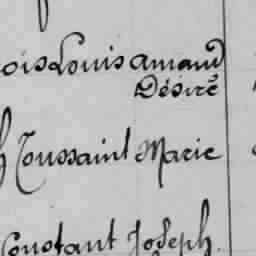 ois Louis amand
Désiré
h Toussaint Marie
Constant Joseph.